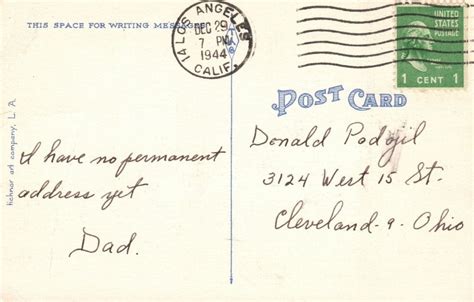 THIS SPACE FOR WRITING MESSAGES
LOS ANGELES
14
DEC 29
7 PM
1944
CALIF.
UNITED STATES
POSTAGE
1 CENT 1
POST CARD
tichnor art company, L. A.
I have no permanent
address yet
Dad.
Donald Podojil
3124 West 15 St.
Cleveland - 9. Ohio